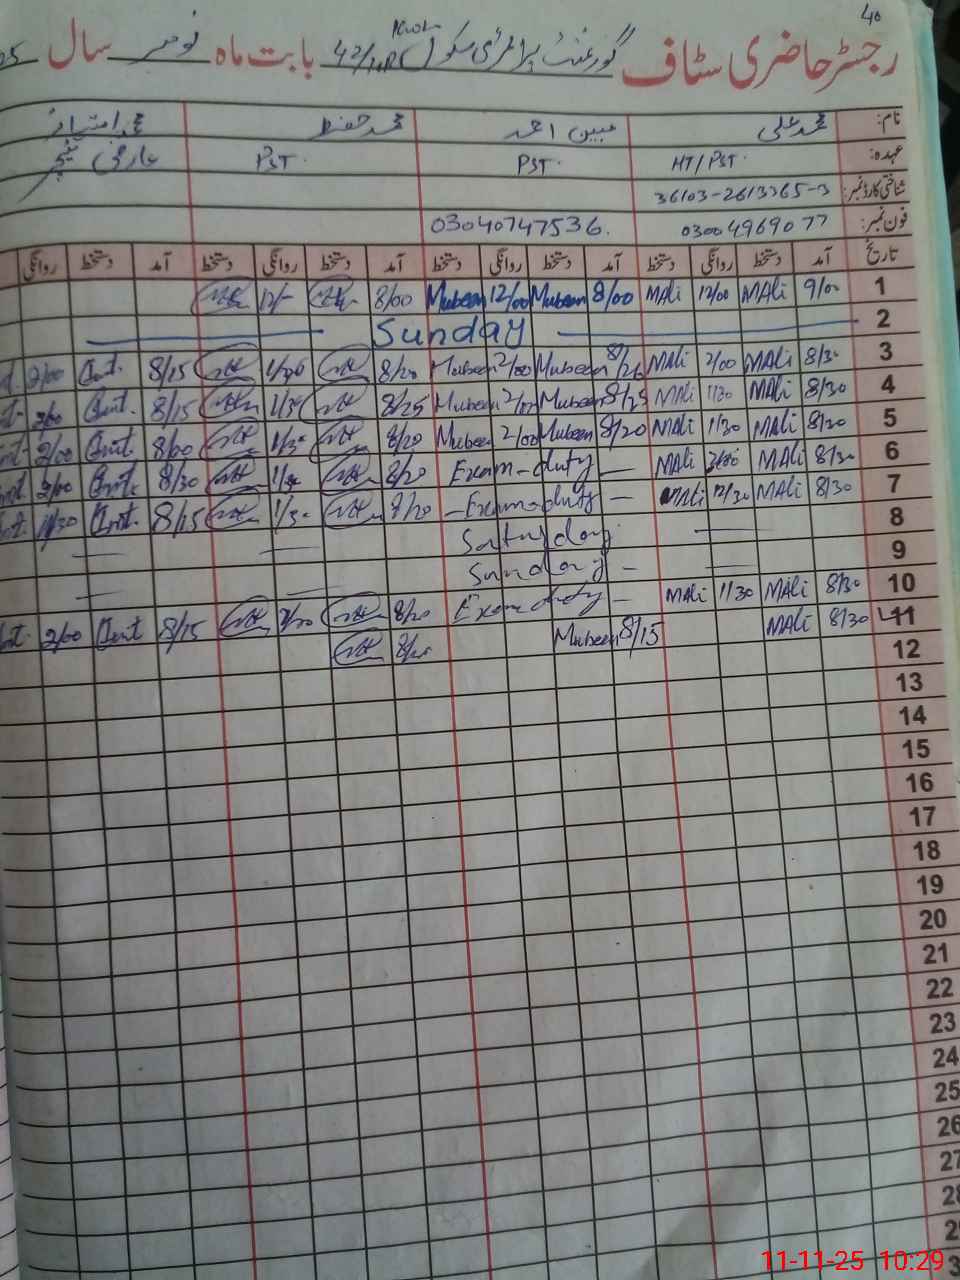 40
رجسٹر حاضری سٹاف گورنمنٹ پرائمری سکول 42/12R بابت ماہ نومبر سال
نام: محمد علی مبین احمد محمد حفیظ محمد امتیاز
عہدہ: HT/PST. PST. PST. عارضی ٹیچر
شناختی کارڈ نمبر: 36103-2613365-3
فون نمبر: 03004969077 03040747536.
تاریخ آمد دستخط روانگی دستخط آمد دستخط روانگی دستخط آمد دستخط روانگی دستخط آمد دستخط روانگی
1 9/00 MAli 12/00 MAli 8/00 Mubeen 12/00 Mubeen 8/00 12/-
2 Sunday
3 8/30 MAli 2/00 MAli 8/26 Mubeen 2/00 Mubeen 8/20 8/15 2/00
4 8/30 MAli 1/30 MAli 8/25 Mubeen 2/00 Mubeen 8/25 1/30 8/15 2/00
5 8/20 MAli 1/30 MAli 8/20 Mubeen 2/00 Mubeen 8/20 8/00 2/00
6 8/30 MAli MAli Exam-duty — 8/20 8/30 2/00
7 8/30 MAli 12/30 MAli — Exam-duty — 7/20 1/30 8/15 1/30
8 Saturday
9 Sunday —
10 8/30 MAli 1/30 MAli Exam duty — 8/20 8/15 2/00
11 8/30 MAli 8/15 Mubeen
12
13
14
15
16
17
18
19
20
21
22
23
24
25
26
27
28
11-11-25 10:29